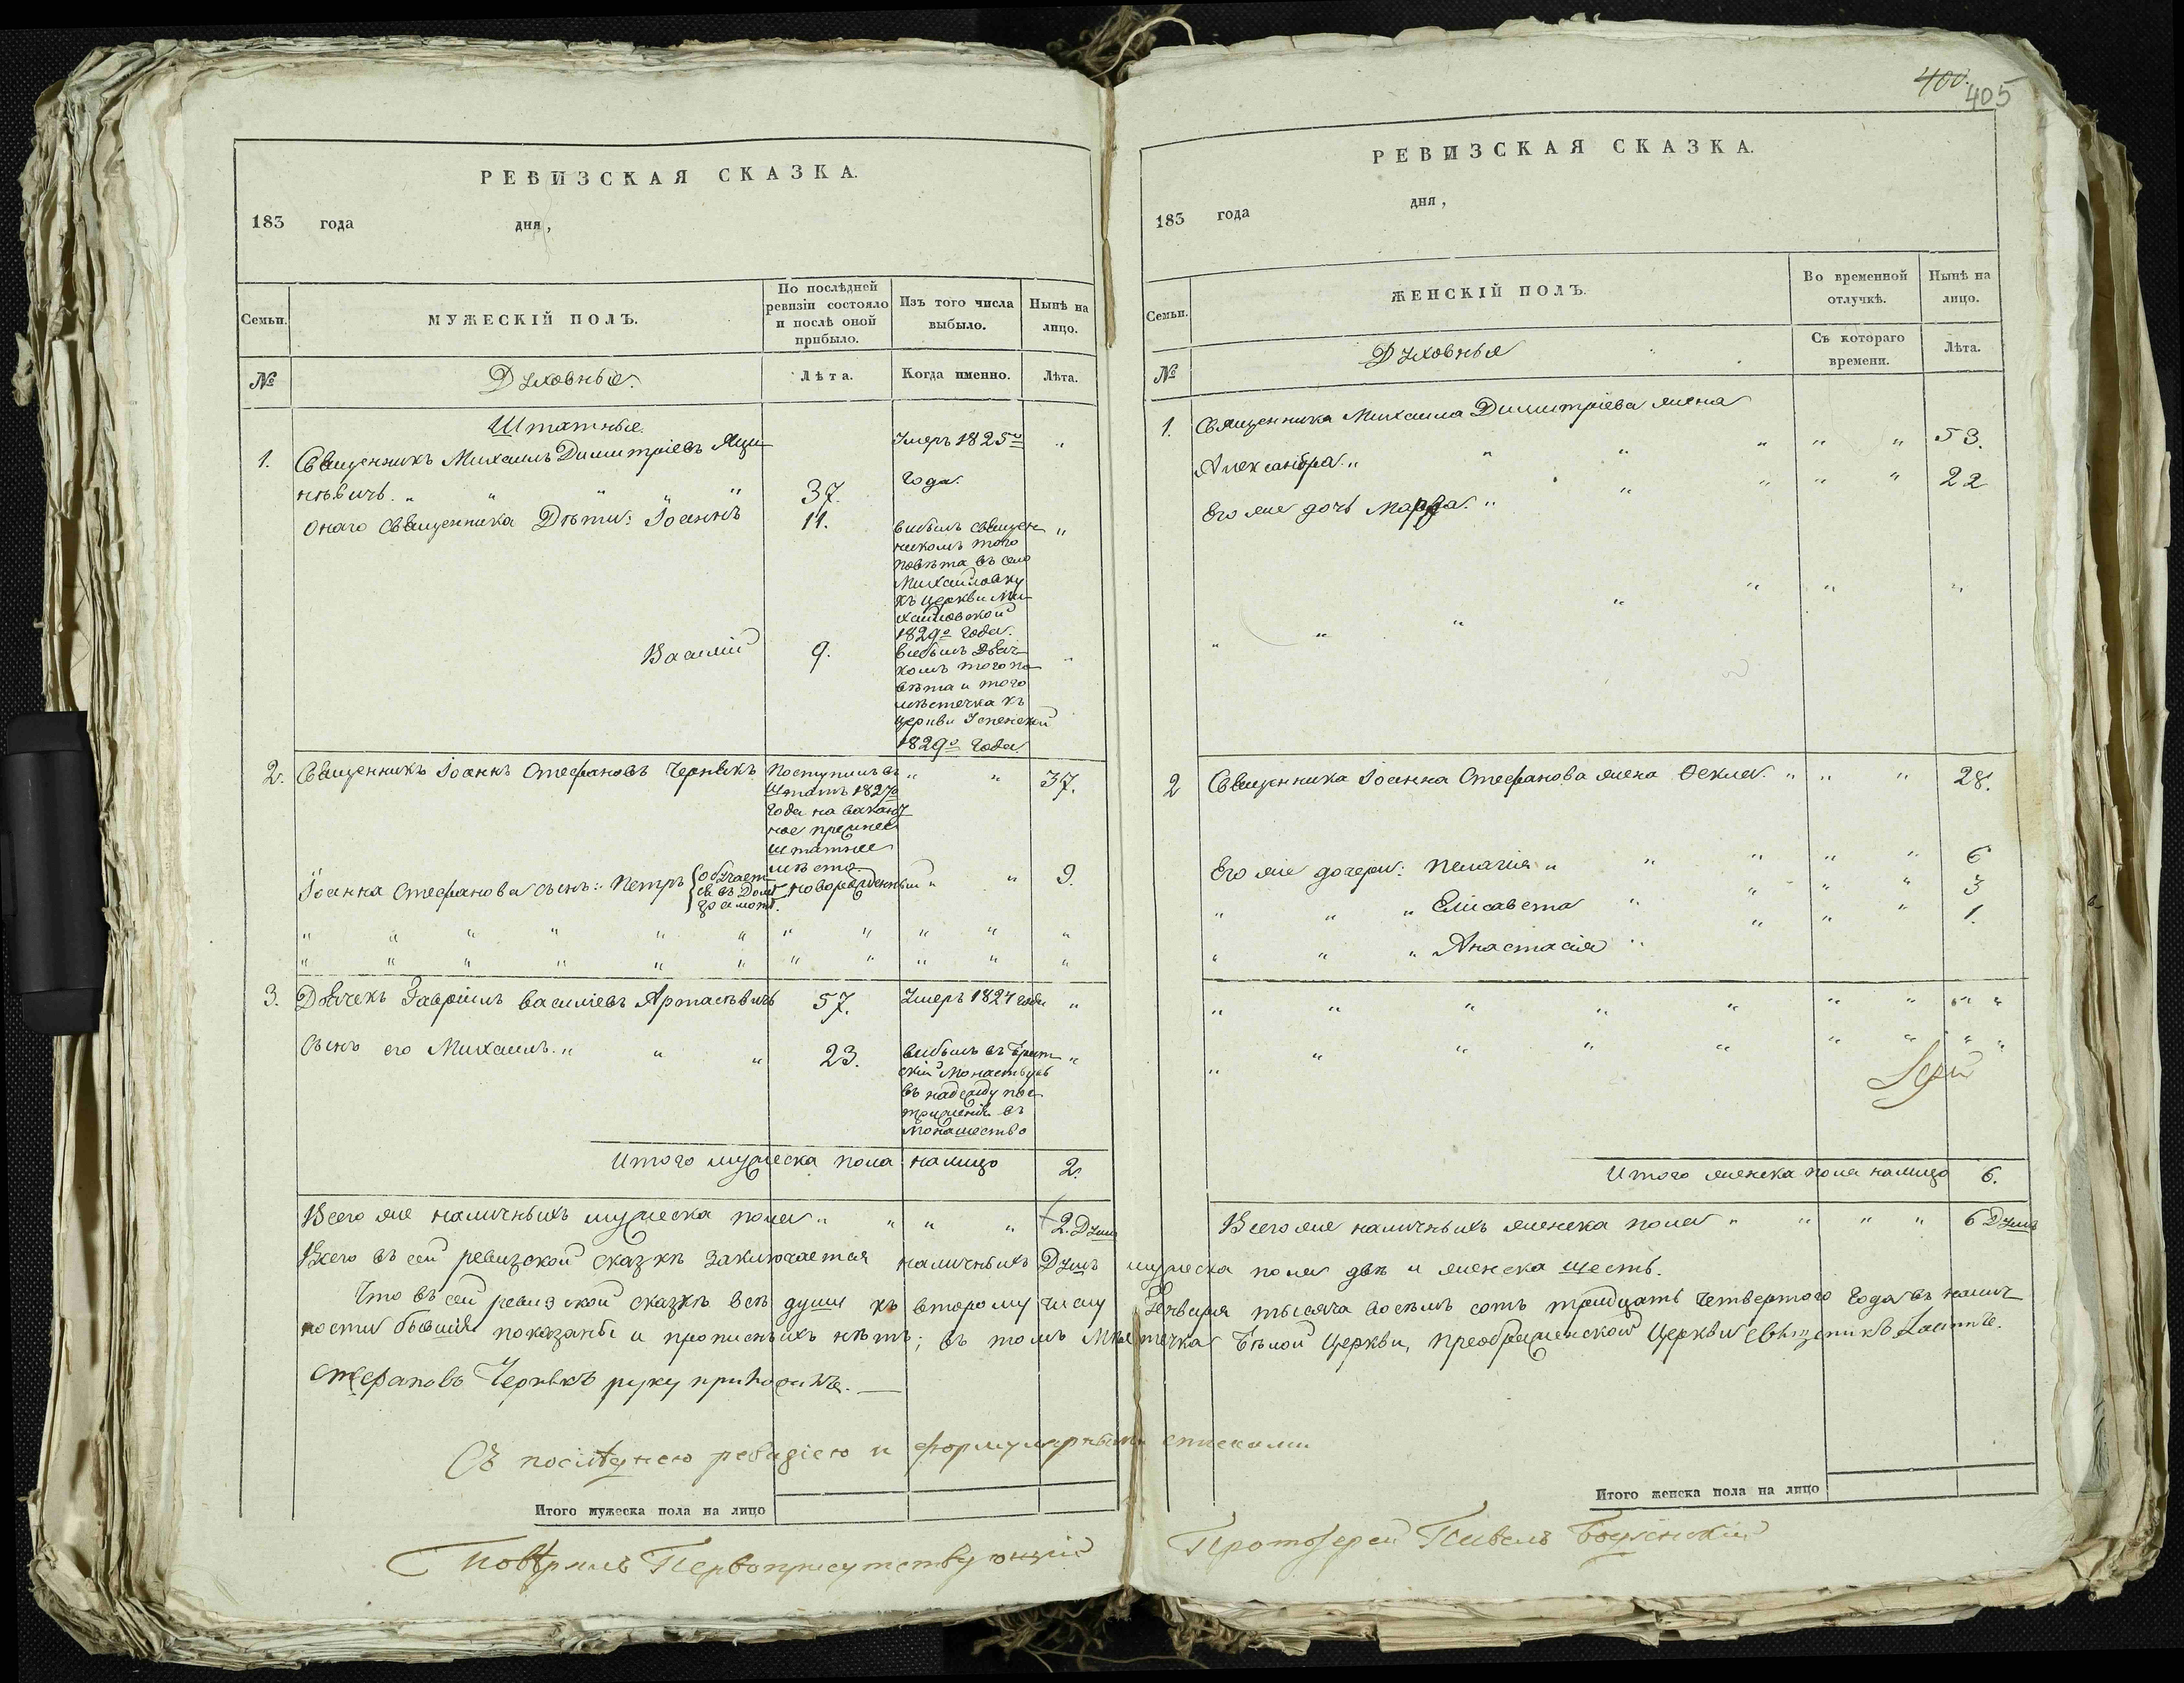 РЕВИЗСКАЯ СКАЗКА.
183 года дня,
Семьи.
МУЖЕСКІЙ ПОЛЪ.
По послѣдней
ревизіи состояло
и послѣ оной
прибыло.
Изъ того числа
выбыло.
Нынѣ на
лицо.
№
Духовные.
Лѣта.
Когда именно.
Лѣта.
Штатные.
1. Священникъ Михаилъ Димитріевъ Яци- Умеръ 1825го "
нѣвичъ. " " " " " 37. года.
Онаго священника Дѣти: Іоаннъ 11. выбылъ священ- "
никомъ того
повѣта въ село
Михайловку
къ церкви Ми-
хайловской
1829го года.
Василій 9. выбылъ Дьяч- "
комъ того по-
вѣта и того
мѣстечка къ
церкви Успенской
1829го года.
2. Священникъ Іоаннъ Стефановъ Чернякъ Поступилъ въ " " 37.
Штатъ 1827го
года на вакант-
ное
штатное
мѣсто
Іоанна Стефанова сынъ: Петръ { обучает- новорожденный " " 9.
ся въ Домѣ
грамотѣ.
" " " " " " " " " " "
" " " " " " " " " " "
3. Дьячекъ Гавріилъ Василіевъ 57. Умеръ 1827 года "
Сынъ его Михаилъ. " " " 23. выбылъ въ Брат- "
скій Монастырь
въ надежду пос-
триженія въ
Монашество
Итого мужеска пола налицо 2.
Всего же наличныхъ мужеска пола " " " " 2. Души
Итого мужеска пола на лицо
400.
405
РЕВИЗСКАЯ СКАЗКА.
183 года дня,
Семьи.
ЖЕНСКІЙ ПОЛЪ.
Во временной
отлучкѣ.
Нынѣ на
лицо.
№
Духовныя
Съ котораго
времени.
Лѣта.
1. Священника Михаила Димитріева жена
Александра. " " " " " " 53.
Его же дочь Марфа. " " " " " 22
" " " " " " "
2 Священника Іоанна Стефанова жена Ѳекла. " " " 28.
Его же дочери: Пелагія " " " " " 6
" " " Елисавета " " " " 3
" " " Анастасія " " " " 1.
" " " " " " " " "
" " " " " " " " "
Итого женска пола налицо 6.
Всего же наличныхъ женска пола " " " " 6 Душъ
Всего въ сей ревизской сказкѣ заключается наличныхъ Душъ мужеска пола двѣ и женска шесть.
Что въ сей ревизской сказкѣ всѣ души къ второму числу Генваря тысяча восемь сотъ тридцать четвертого года въ налич-
ности бывшія показаны и прописныхъ нѣтъ; въ томъ Мѣстечка Бѣлой Церкви, Преображенской Церкви священникъ Іоаннъ
Стефановъ Чернякъ руку приложилъ. —
Съ послѣднею ревизіею и формулярными списками
повѣрялъ Первоприсутствующій Протоіерей Павелъ
Итого женска пола на лицо